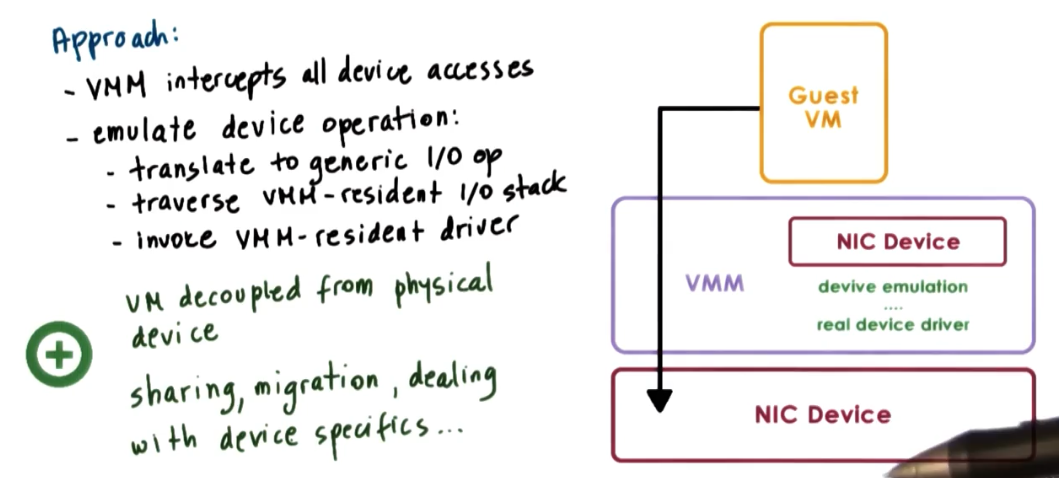 Approach:
- VMM intercepts all device accesses
- emulate device operation:
- translate to generic I/O op
- traverse VMM-resident I/O stack
- invoke VMM-resident driver
VM decoupled from physical
device
sharing, migration, dealing
with device specifics...
Guest
VM
NIC Device
VMM
devive emulation
....
real device driver
NIC Device